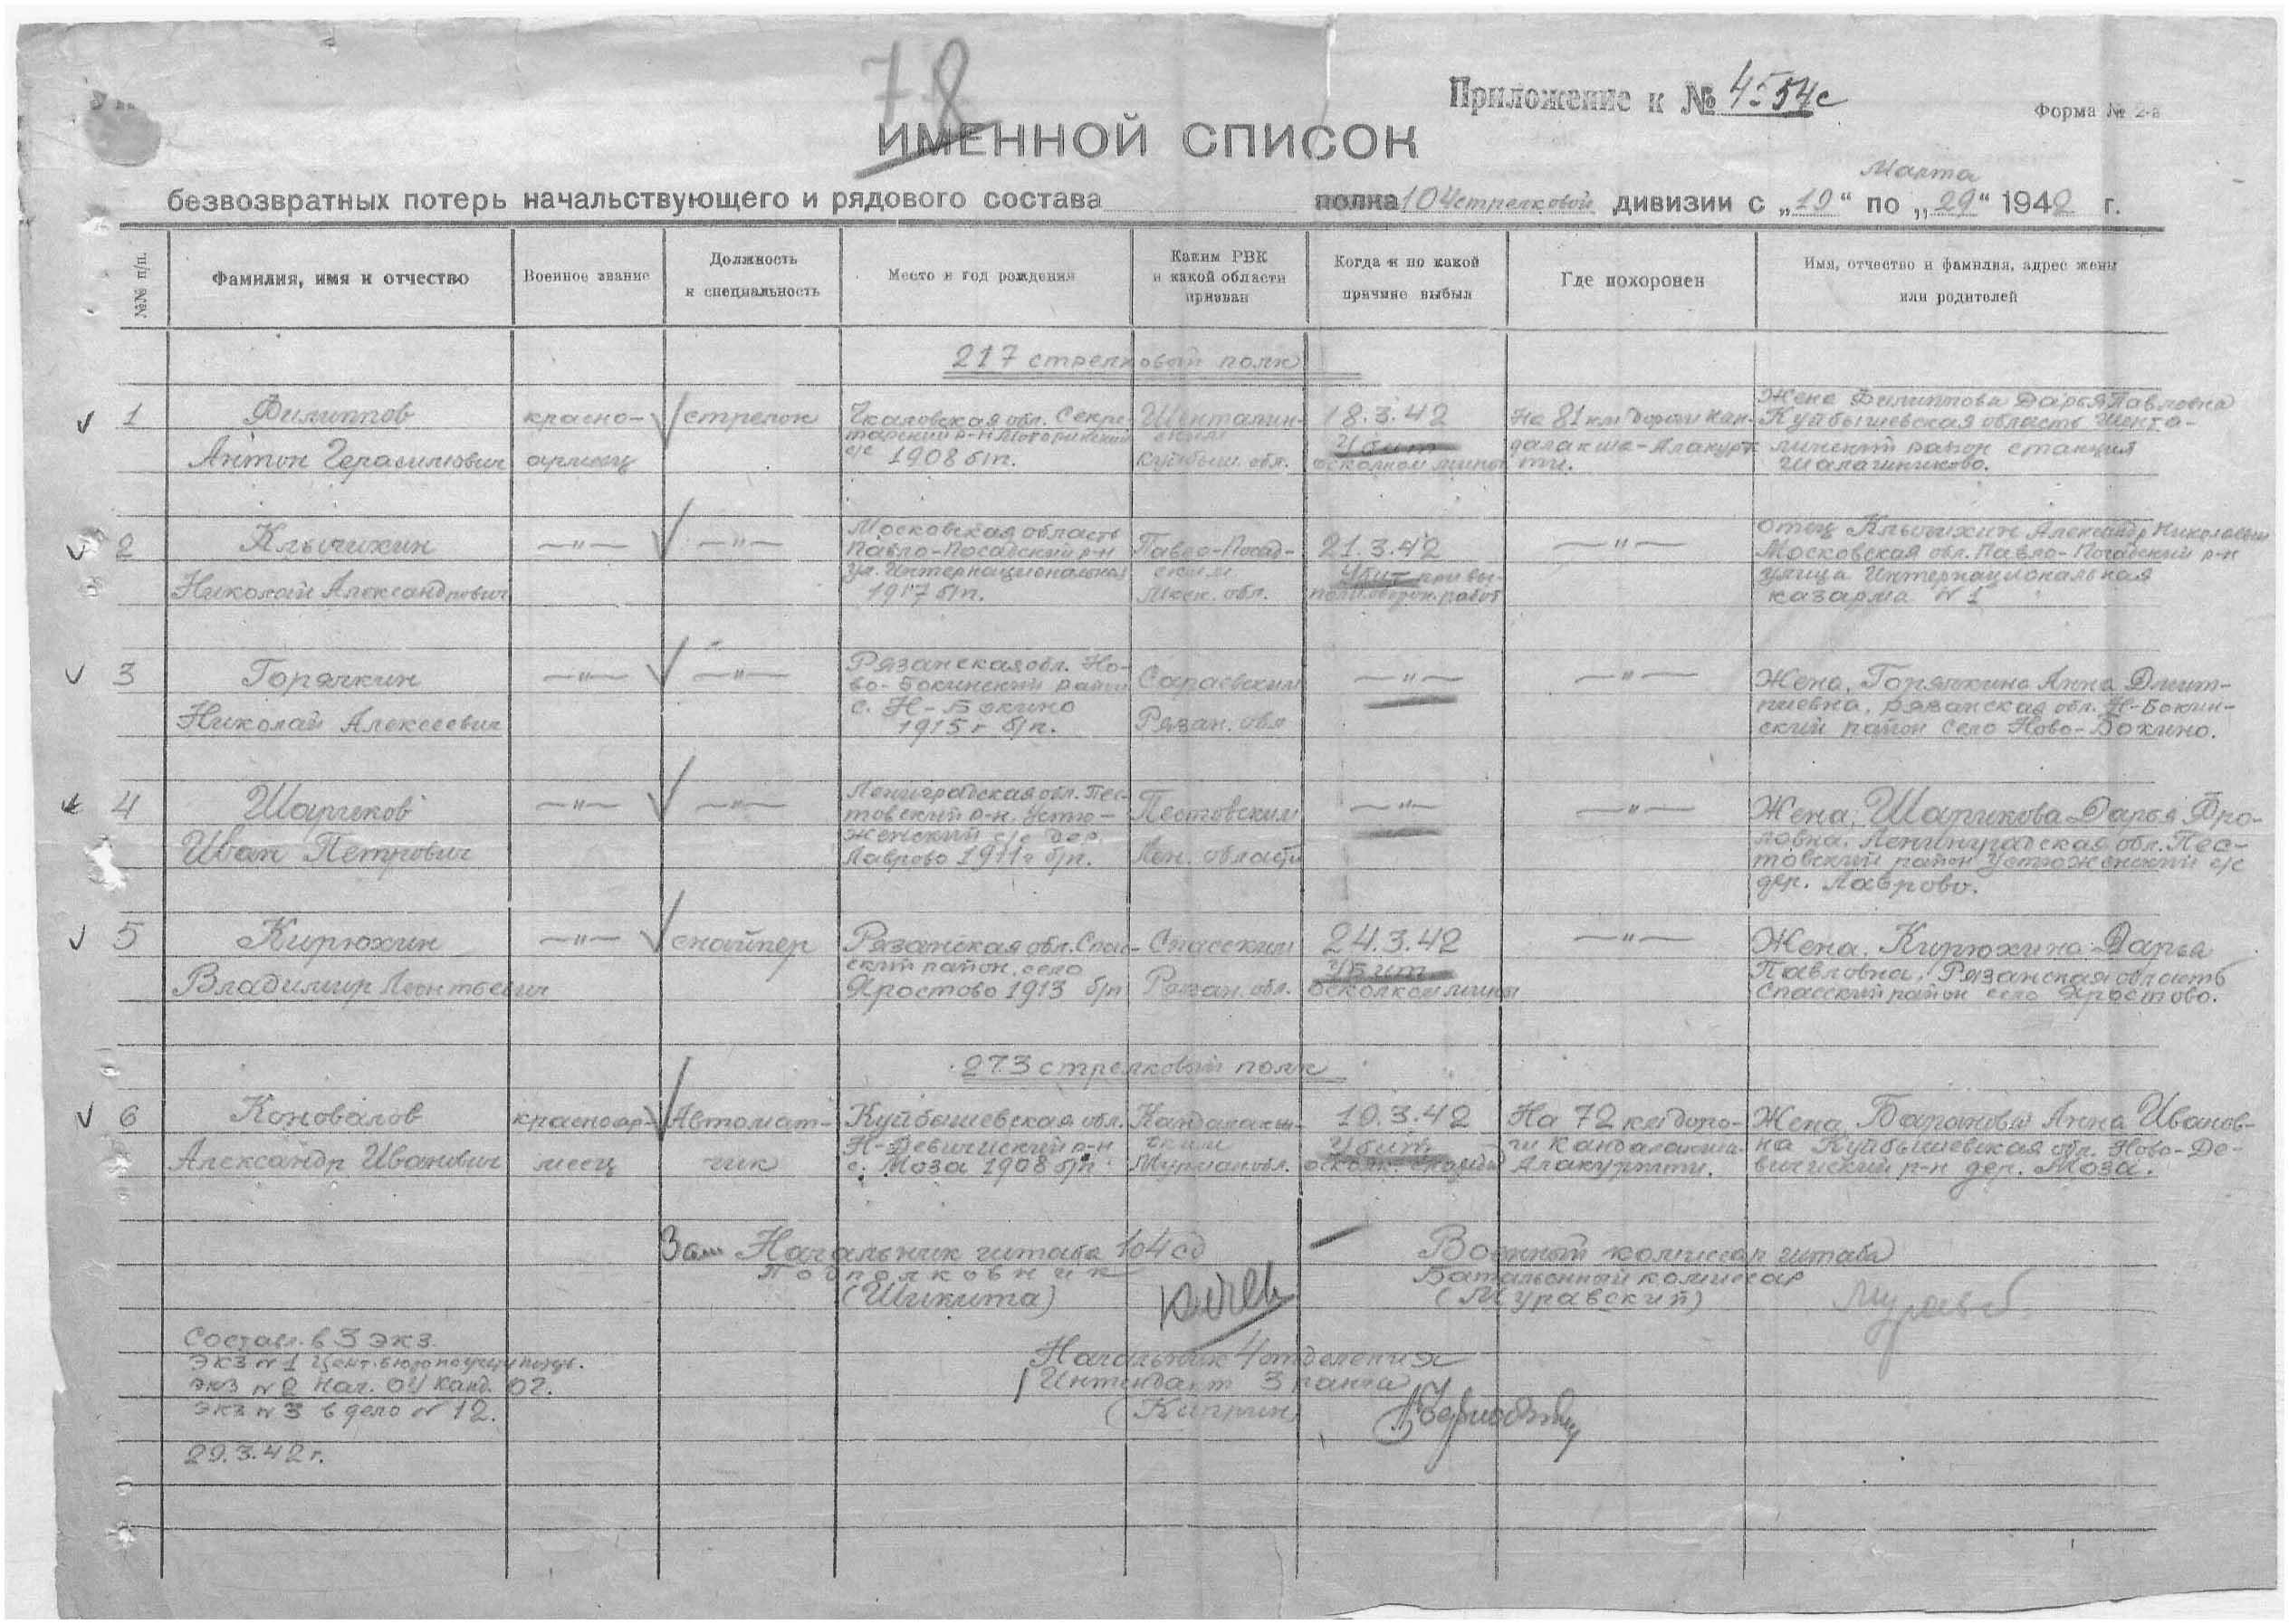 78
Приложение к № 4554с
Форма № 2-а
ИМЕННОЙ СПИСОК
Марта
безвозвратных потерь начальствующего и рядового состава полка 104 стрелковой дивизии с „19“ по „29“ 1942 г.
№№ п/п.
Фамилия, имя и отчество
Военное звание
Должность
и специальность
Место и год рождения
Каким РВК
и какой области
призван
Когда и по какой
причине выбыл
Где похоронен
Имя, отчество и фамилия, адрес жены
или родителей
217 стрелковый полк
1
Филиппов
Антон Герасимович
красно-
армеец
стрелок
Чкаловская обл. Секре
тарский р-н
с/с 1908 б/п.
Шенталин-
ским
Куйбыш. обл.
18.3.42
Убит
осколком мины
На 81 км дороги Кан-
далакша-Алакурт
ти.
Жена Филиппова Дарья Павловна
Куйбышевская область Шента-
линский район станция
Шалашниково.
2
Клычихин
Николай Александрович
—"—
—"—
Московская область
Павло-Посадский р-н
ул. Интернациональная
1917 б/п.
Павло-Посад-
ским
Моск. обл.
21.3.42
Убит при вы-
полн. оборон. работ
—"—
Отец Клычихин Александр Николаевич
Московская обл. Павло-Посадский р-н
улица Интернациональная
казарма № 1
3
Горячкин
Николай Алексеевич
—"—
—"—
Рязанская обл. Но-
во-Бокинский район
с. Н-Бокино
1915 г. б/п.
Сараевским
Рязан. обл
—"—
—"—
Жена, Горячкина Анна Дмит-
риевна, Рязанская обл. Н-Бокин-
ский район село Ново-Бокино.
4
Шариков
Иван Петрович
—"—
—"—
Ленинградская обл. Пес-
товский р-н. Устю-
женский с/с дер.
Лаврово 1911 г б/п.
Пестовским
Лен. области
—"—
—"—
Жена, Шарикова Дарья Фро-
ловна. Ленинградская обл. Пес-
товский район Устюженский с/с
дер. Лаврово.
5
Кирюхин
Владимир Леонтьевич
—"—
снайпер
Рязанская обл. Спас-
ский район, село
Яростово 1913 б/п
Спасским
Рязан. обл.
24.3.42
Убит
осколком мины
—"—
Жена, Кирюхина Дарья
Павловна, Рязанская область
Спасский район село Яростово.
273 стрелковый полк
6
Коновалов
Александр Иванович
красноар-
меец
Автомат-
чик
Куйбышевская обл.
Н-Девиченский р-н
с. Моза 1908 б/п.
Кандалакш-
ским
Мурман обл.
19.3.42
Убит
осколк.
На 72 км доро-
ги Кандалакша-
Алакуртти.
Жена, Баранова Анна Иванов-
на Куйбышевская обл. Ново-Де-
виченский р-н дер. Моза.
Зам Начальник штаба 104 сд
Подполковник
(Шикита)
Военный комиссар штаба
Батальонный комиссар
(Муравский)
Начальник 4 отделения
Интендант 3 ранга
(Киприн)
Составл. в 3 экз.
экз № 1
экз № 2 нач. ОУ Канд. ОГ.
экз № 3 в дело № 12.
29.3.42 г.